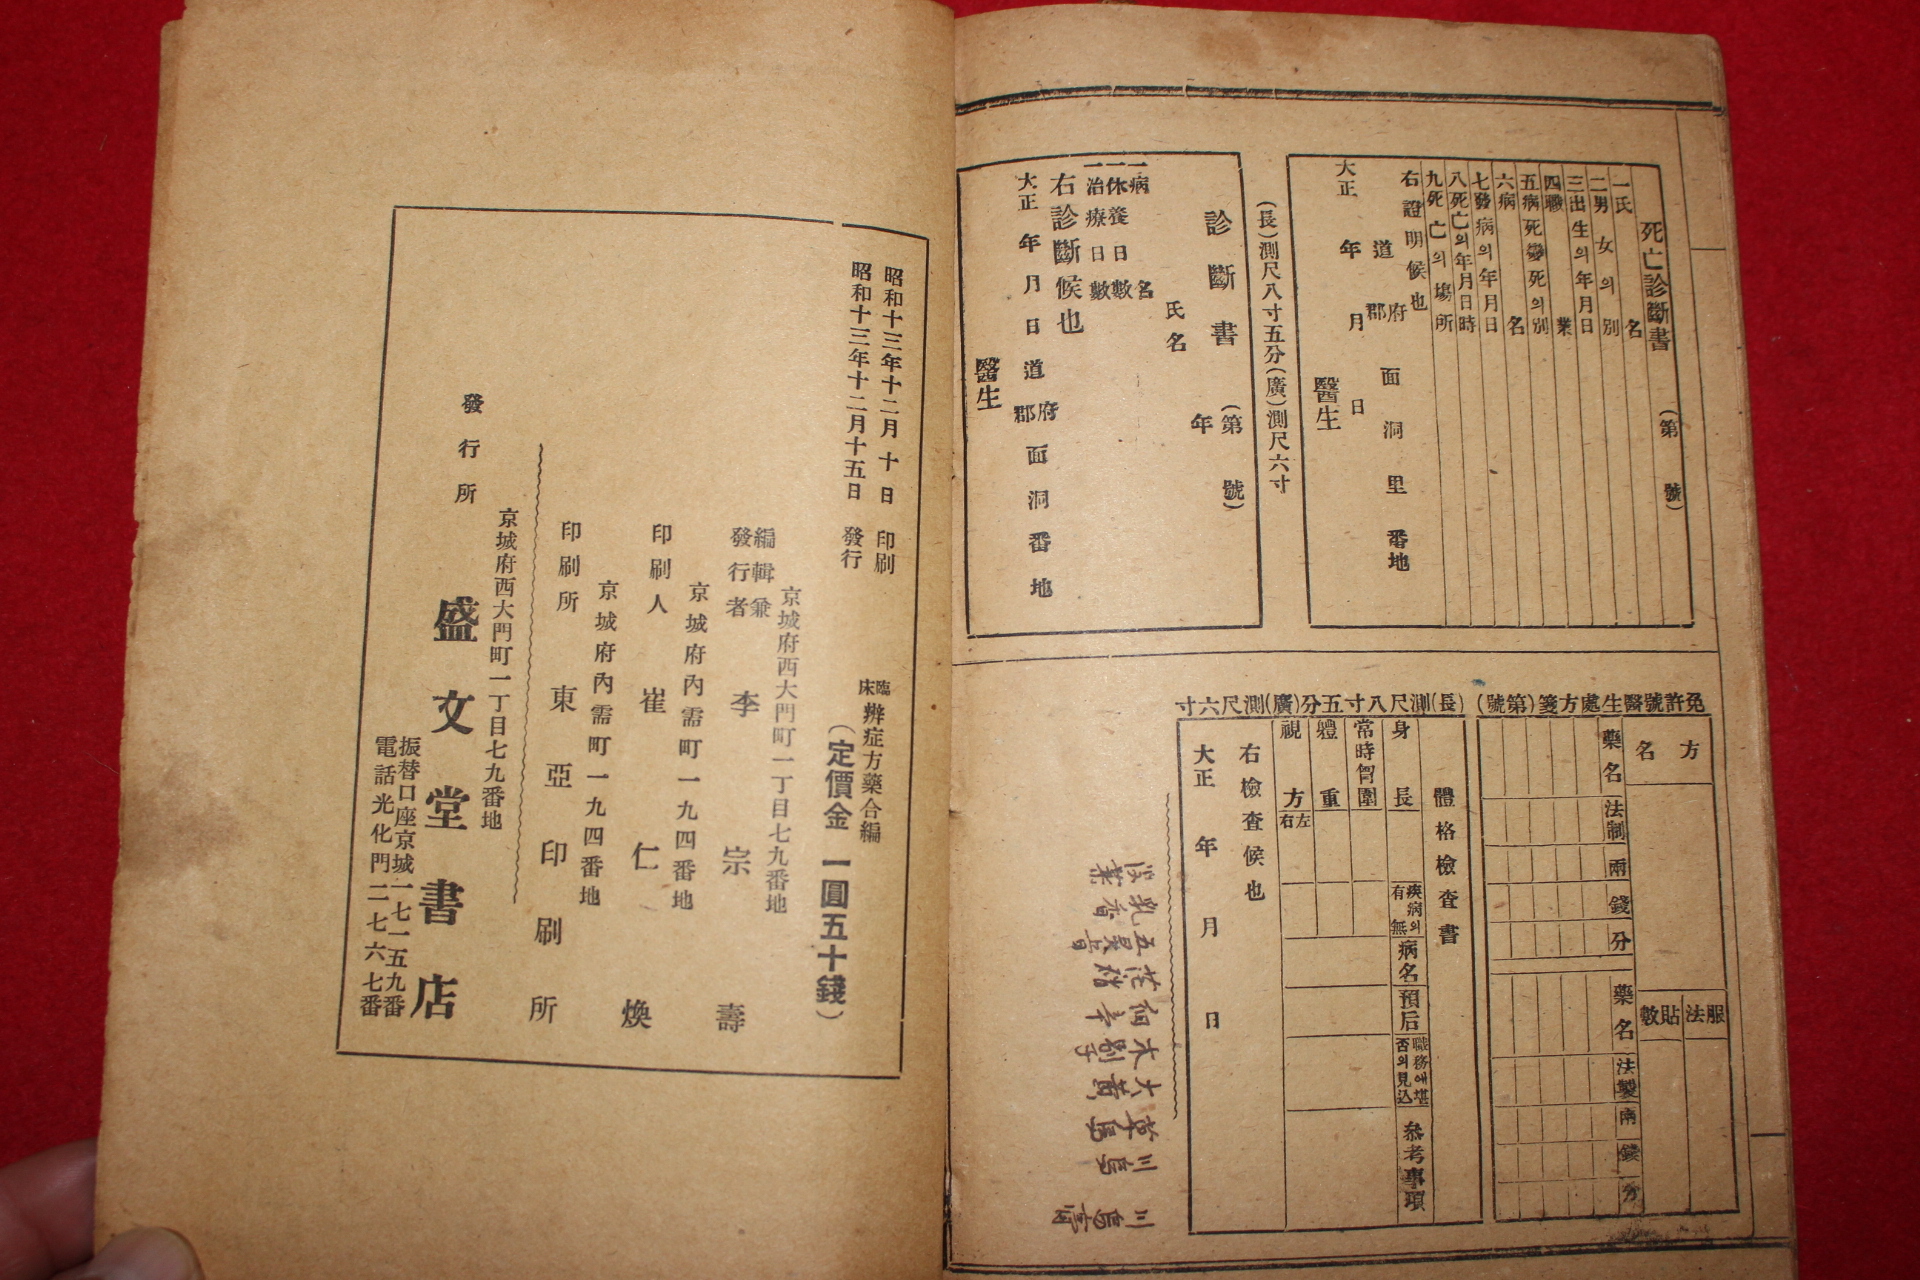 死亡診斷書 (第 號)
一氏 名
二男女의別
三出生의年月日
四職 業
五病死變死의別
六病 名
七發病의年月日
八死亡의年月日時
九死亡의場所
右證明候也
道 府郡 面 洞 里 番地
大正 年 月 日
醫生
(長)測尺八寸五分(廣)測尺六寸
診斷書 (第 號)
年
氏名
一病 名
一休養日數
一治療日數
右診斷候也
大正 年 月 日 道 府郡 面 洞 番地
醫生
免許號醫生處方箋(第號)
方名
服法
貼數
藥名 法製 兩 錢 分
藥名 法製 兩 錢 分
(長)測尺八寸五分(廣)測尺六寸
體格檢査書
身長
常時胷圍
體重
視方 左右
疾病의有無
病名
預后
職務에堪否의見込
參考事項
右檢査候也
大正 年 月 日
昭和十三年十二月十日 印刷
昭和十三年十二月十五日 發行
臨床辨症方藥合編
(定價金 一圓五十錢)
京城府西大門町一丁目七九番地
編輯兼發行者 李宗壽
京城府內需町一九四番地
印刷人 崔仁煥
京城府內需町一九四番地
印刷所 東亞印刷所
京城府西大門町一丁目七九番地
發行所 盛文堂書店
振替口座京城一七一五九番
電話光化門二七六七番